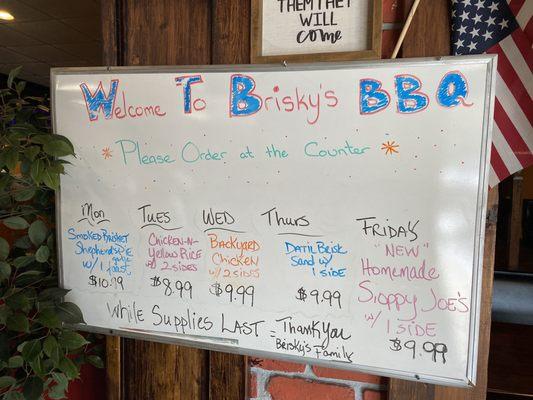 THEM THEY
WILL
come
Welcome To Brisky's BBQ
Please Order at the Counter
Mon
Smoked Brisket
Shepherds Pie
w/ 1 toast
$10.19
Tues
Chicken-N-
Yellow Rice
w/ 2 sides
$8.99
WED
Backyard
Chicken
w/ 2 sides
$9.99
Thurs
Datil Brisk
Sand w/
1 side
$9.99
Friday's
"NEW"
Homemade
Sloppy Joe's
w/ 1 side
$9.99
While Supplies LAST = Thank You
Brisky's Family